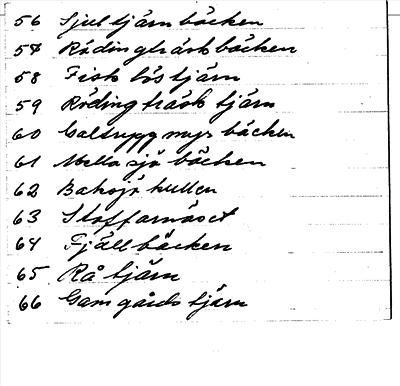 56 Sjul tjärn bäcken
57 Rödingträsk bäcken
58 Fisk lös tjärn
59 Röding träsk tjärn
60 myr bäcken
61 Mella sjö bäcken
62 Baksjö kullen
63 Stoffarnäset
64 Fjäll bäcken
65 Rå tjärn
66 Gam gårds tjärn